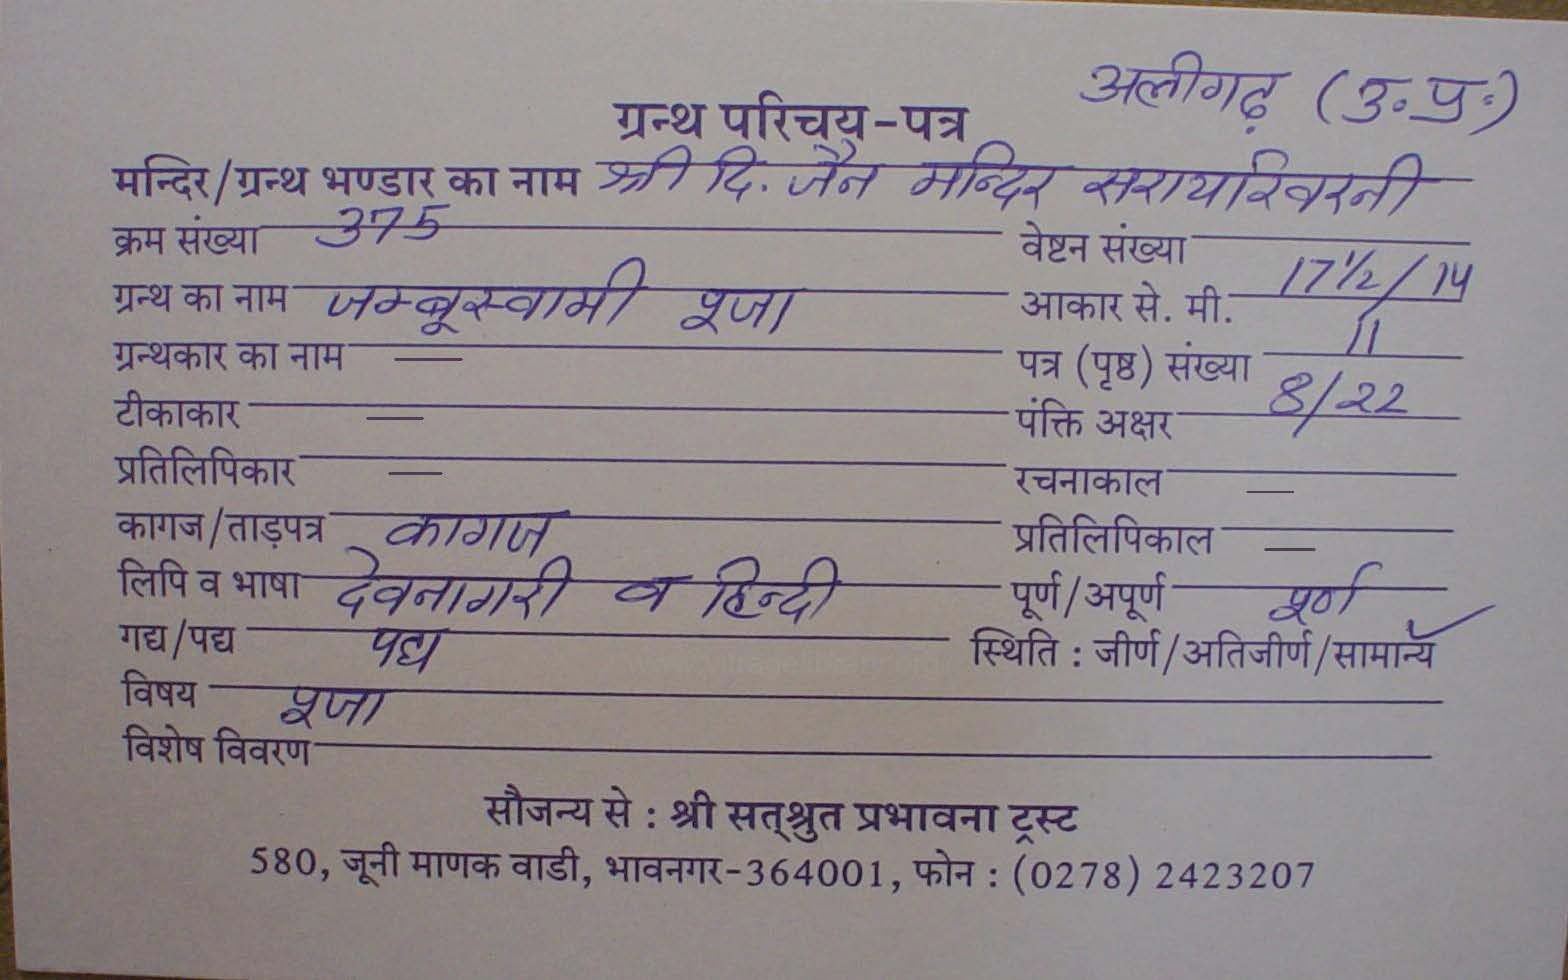 अलीगढ़ (उ॰ प्र॰)
ग्रन्थ परिचय-पत्र
मन्दिर/ग्रन्थ भण्डार का नाम श्री दि. जैन मन्दिर सरायखिरनी
क्रम संख्या 375 वेष्टन संख्या
ग्रन्थ का नाम जम्बूस्वामी पूजा आकार से. मी. 17 1/2 / 14
ग्रन्थकार का नाम — पत्र (पृष्ठ) संख्या 11
टीकाकार — पंक्ति अक्षर 8/22
प्रतिलिपिकार — रचनाकाल —
कागज/ताड़पत्र कागज प्रतिलिपिकाल —
लिपि व भाषा देवनागरी व हिन्दी पूर्ण/अपूर्ण पूर्ण
गद्य/पद्य पद्य स्थिति : जीर्ण/अतिजीर्ण/सामान्य ✓
विषय पूजा
विशेष विवरण
सौजन्य से : श्री सत्श्रुत प्रभावना ट्रस्ट
580, जूनी माणक वाडी, भावनगर-364001, फोन : (0278) 2423207